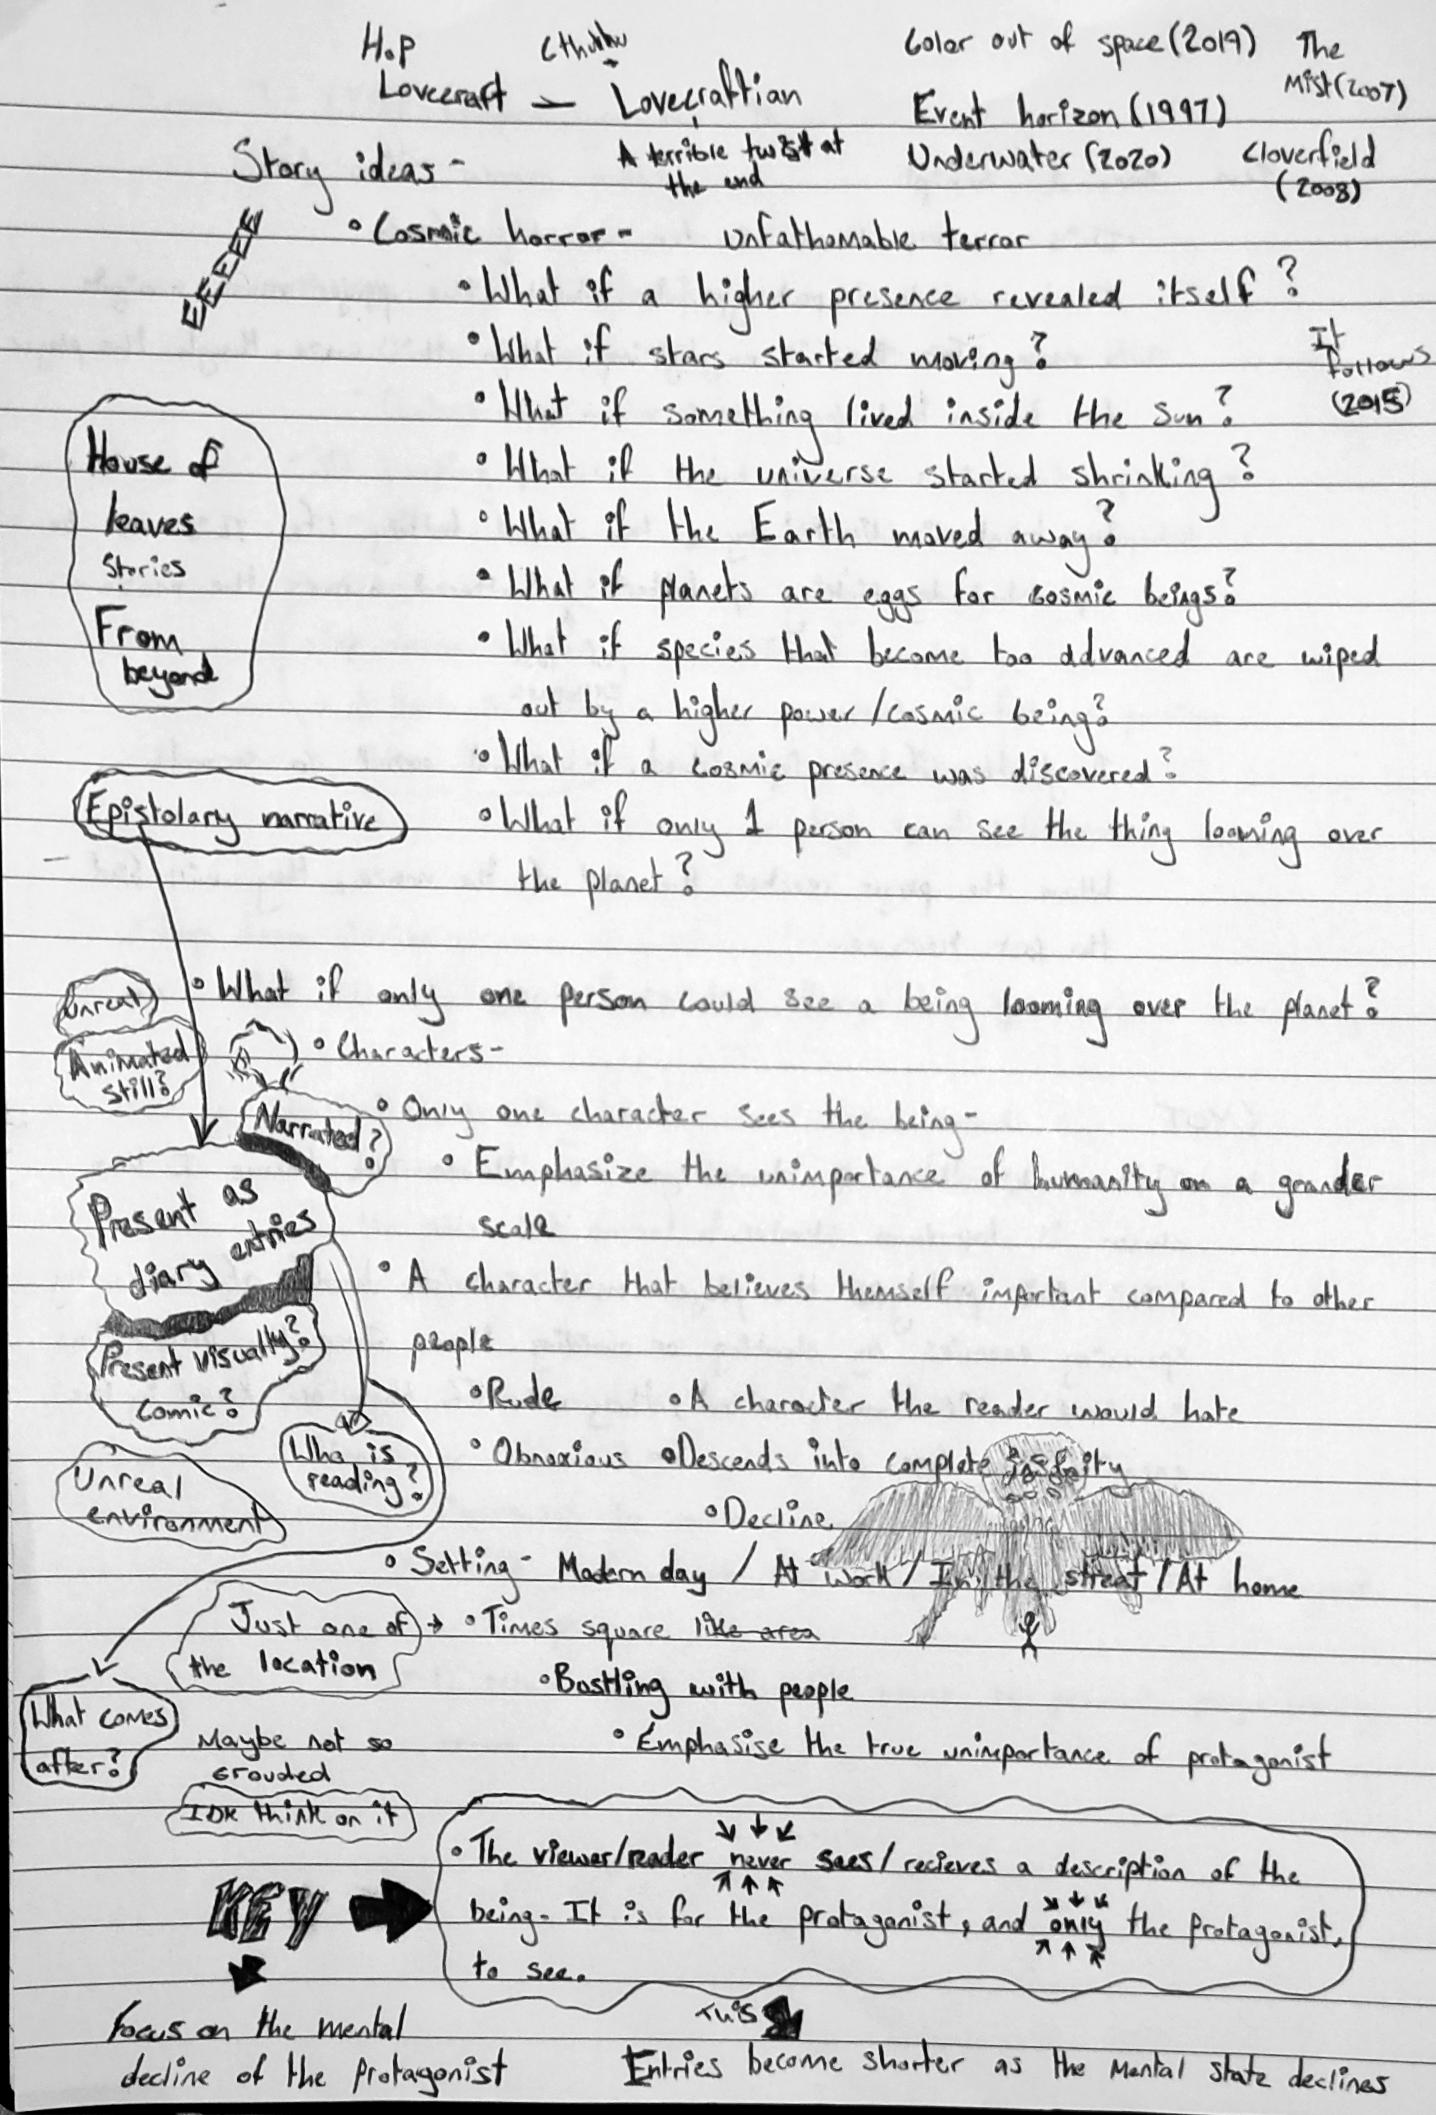 H.P Cthulhu Color out of space (2019) The
Lovecraft – Lovecraftian Event horizon (1997) Mist (2007)
Story ideas - A terrible twist at Underwater (2020) Cloverfield
the end (2008)
• Cosmic horror - unfathomable terror
EEEEE
• What if a higher presence revealed itself?
• What if stars started moving?
It
follows
(2015)
• What if something lived inside the sun?
• What if the universe started shrinking?
• What if the Earth moved away?
• What if planets are eggs for cosmic beings?
• What if species that become too advanced are wiped
out by a higher power/cosmic being?
• What if a cosmic presence was discovered?
• What if only 1 person can see the thing looming over
the planet?
House of
leaves
Stories
From
beyond
Epistolary narrative
• What if only one person could see a being looming over the planet?
Unreal
Animated
still?
• Characters-
Narrated?
• Only one character sees the being-
• Emphasize the unimportance of humanity on a grander
scale
Present as
diary entries
• A character that believes themself important compared to other
people
Present visually?
Comic?
• Rude • A character the reader would hate
Who is
reading?
• Obnoxious • Descends into complete insanity
Unreal
environment
• Decline
• Setting- Modern day / At work / In the street / At home
Just one of → • Times square like area
the location
• Bustling with people
What comes
after?
• Emphasise the true unimportance of protagonist
Maybe not so
grouded
IDK think on it
• The viewer/reader never sees/recieves a description of the
being- It is for the protagonist, and only the protagonist,
to see.
KEY
Focus on the mental
decline of the protagonist
Entries become shorter as the mental state declines